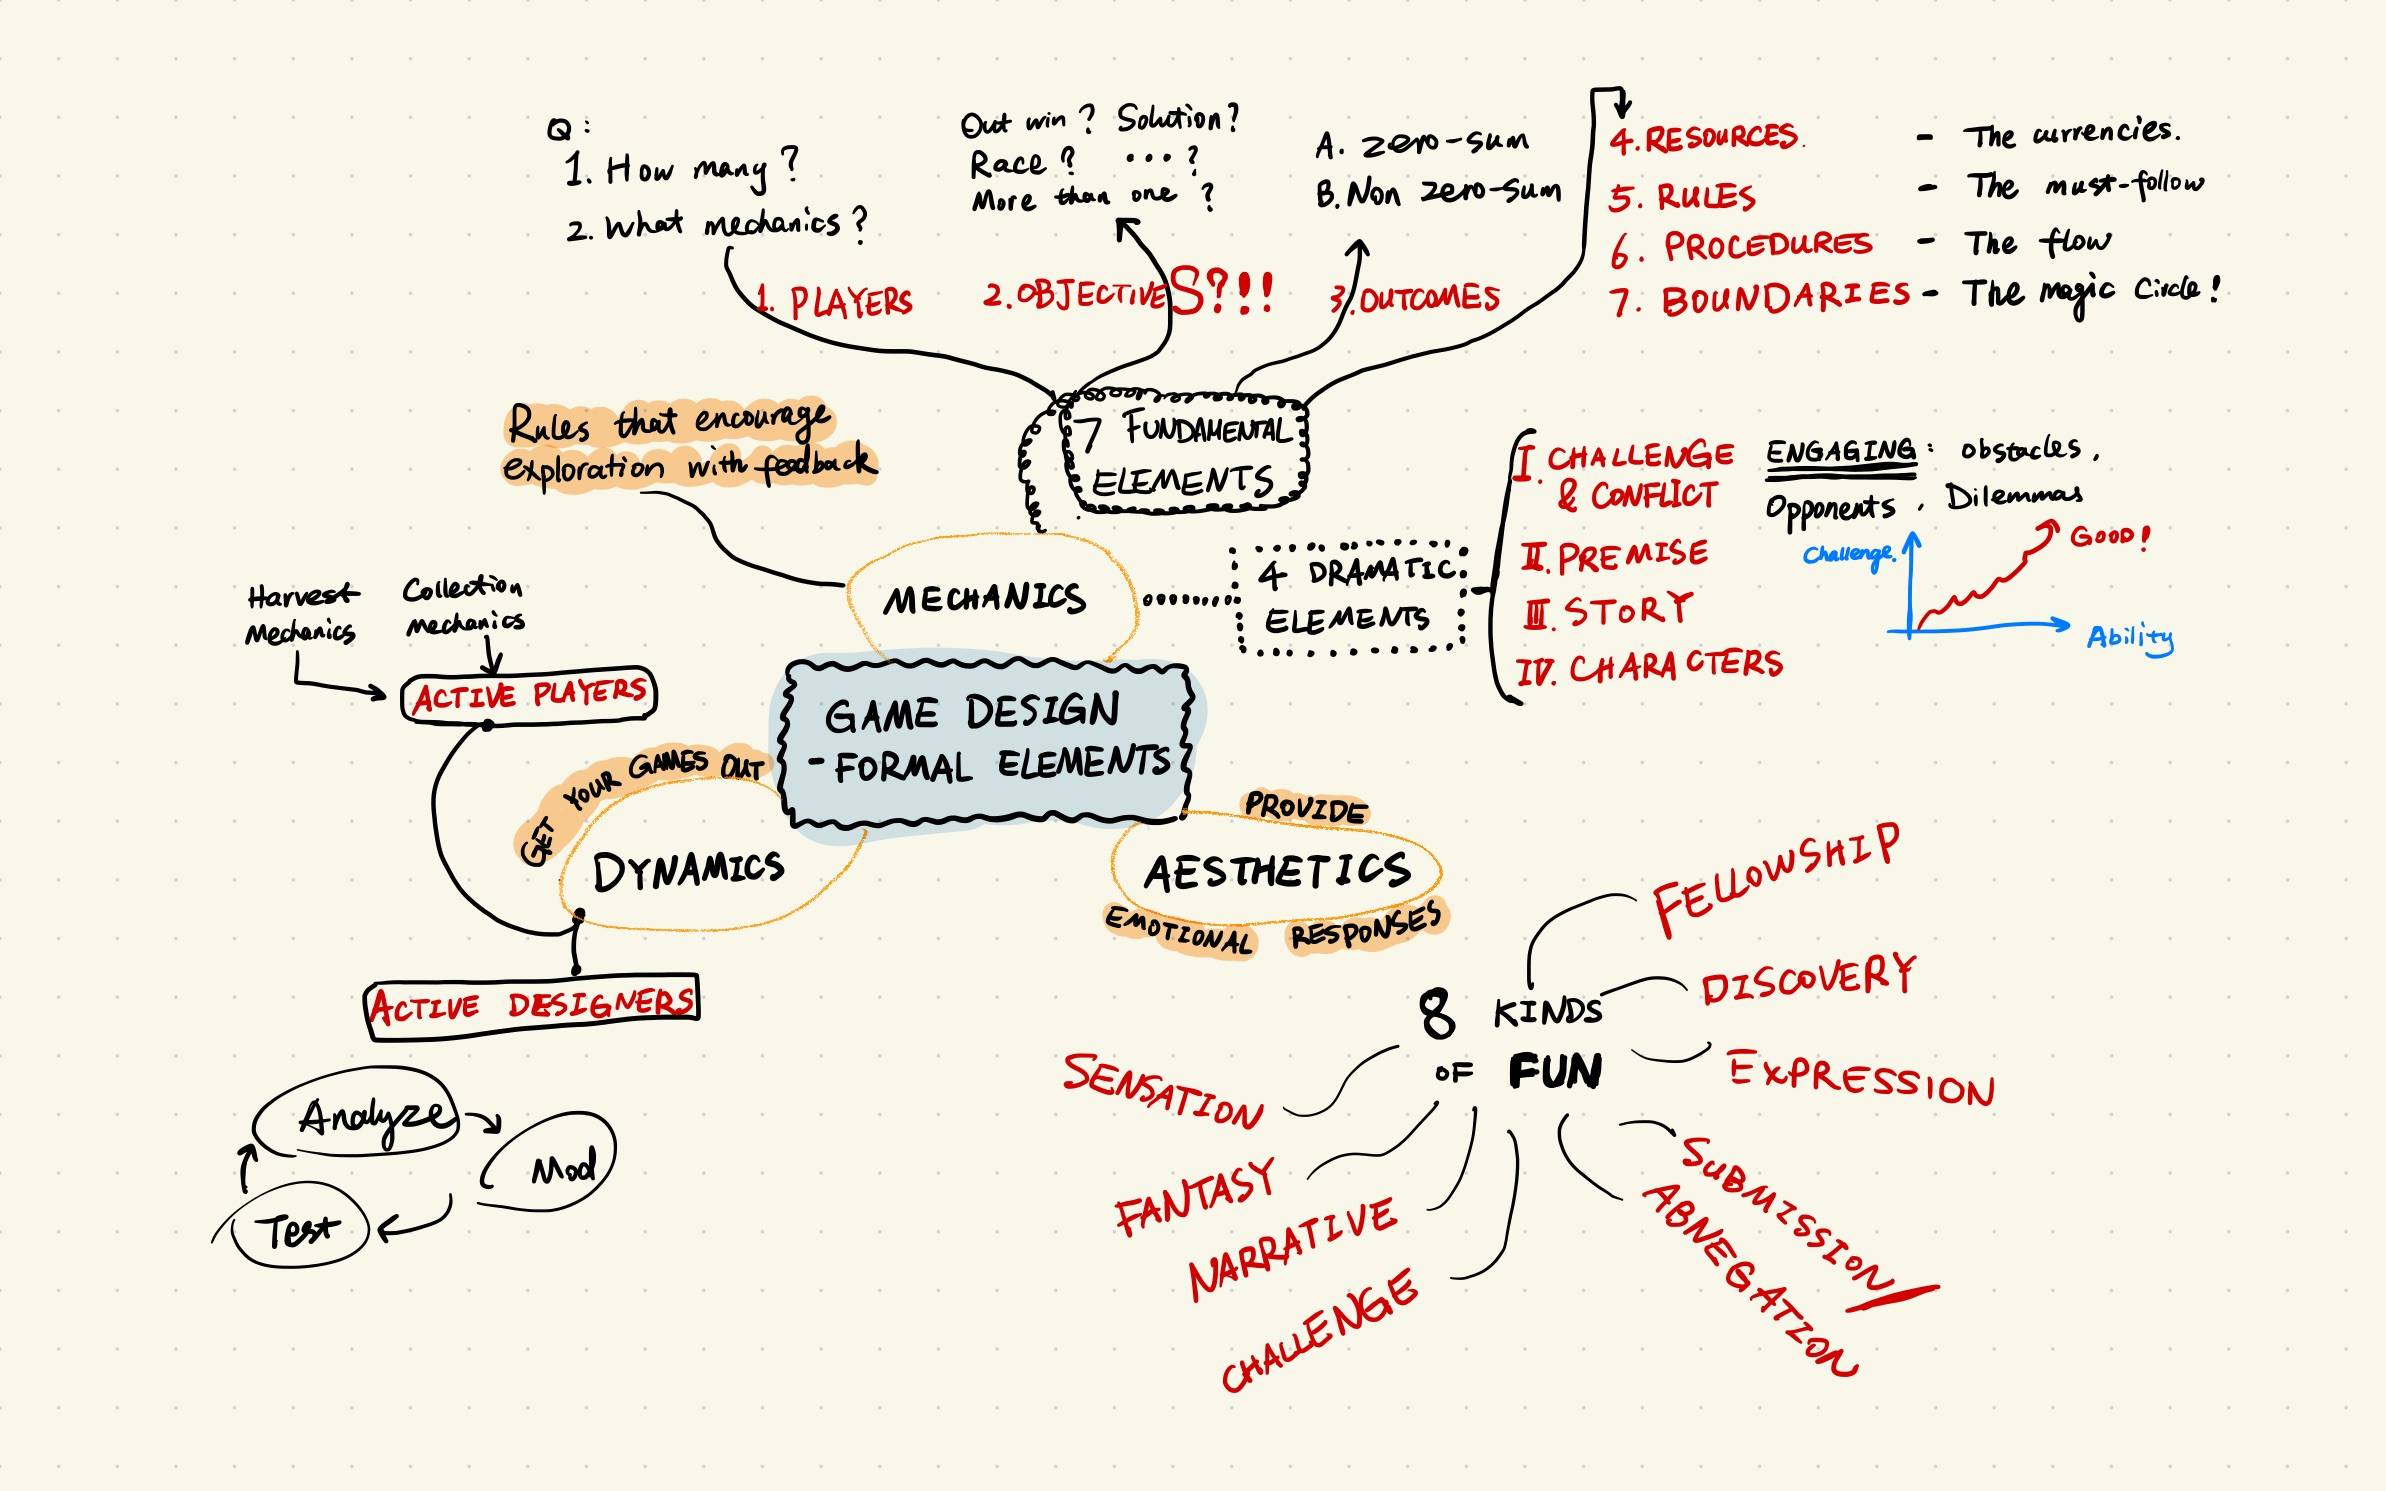 Q:
1. How many?
2. What mechanics?
1. PLAYERS
Out win? Solution?
Race? ...?
More than one?
2. OBJECTIVES?!!
A. zero-sum
B. Non zero-sum
3. OUTCOMES
4. RESOURCES. - The currencies.
5. RULES - The must-follow
6. PROCEDURES - The flow
7. BOUNDARIES - The magic Circle!
7 FUNDAMENTAL
ELEMENTS
Rules that encourage
exploration with feedback
MECHANICS
4 DRAMATIC
ELEMENTS
I. CHALLENGE
& CONFLICT
II. PREMISE
III. STORY
IV. CHARACTERS
ENGAGING: obstacles,
Opponents, Dilemmas
Challenge.
GOOD!
Ability
Harvest
Mechanics
Collection
mechanics
ACTIVE PLAYERS
GAME DESIGN
- FORMAL ELEMENTS
GET YOUR GAMES OUT
DYNAMICS
ACTIVE DESIGNERS
Analyze
Mod
Test
PROVIDE
AESTHETICS
EMOTIONAL RESPONSES
8 KINDS
OF FUN
FELLOWSHIP
DISCOVERY
EXPRESSION
SUBMISSION/
ABNEGATION
SENSATION
FANTASY
NARRATIVE
CHALLENGE